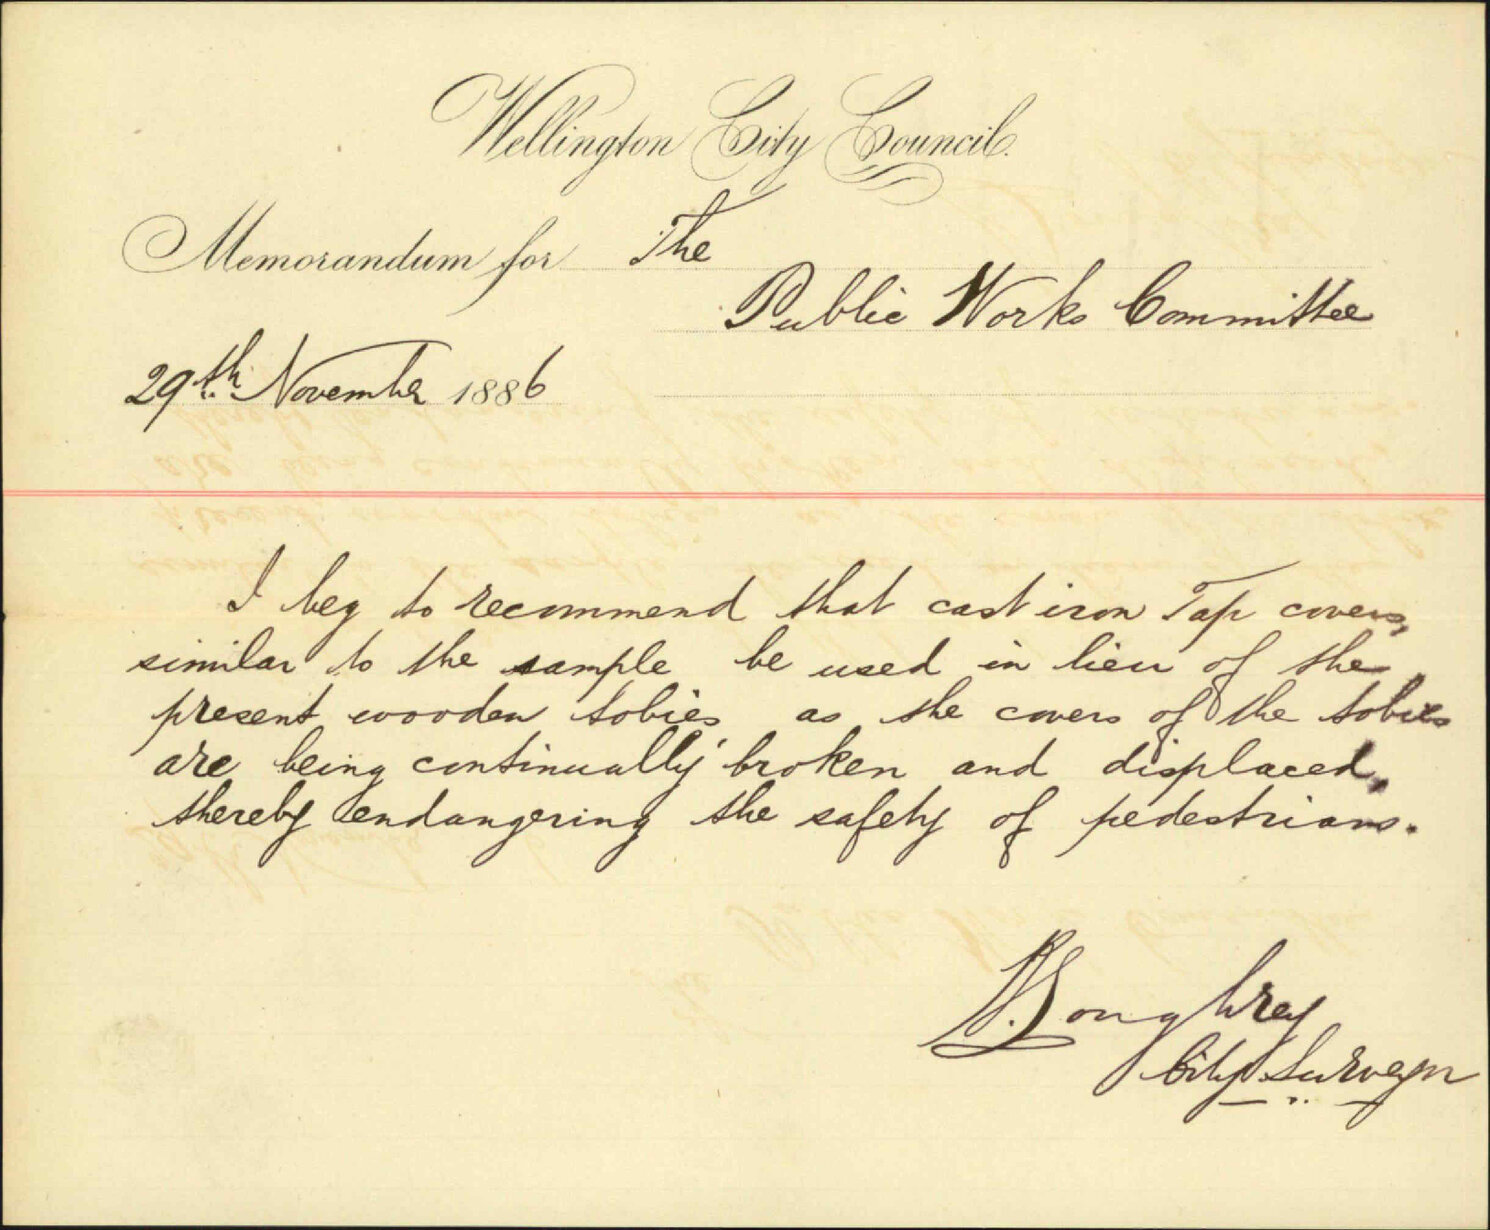 Wellington City Council.
Memorandum for The
Public Works Committee
29th November 1886
I beg to recommend that cast iron Tap covers,
similar to the sample be used in lieu of the
present wooden tobies as the covers of the tobies
are being continually broken and displaced,
thereby endangering the safety of pedestrians.
Loughrey
City Surveyor